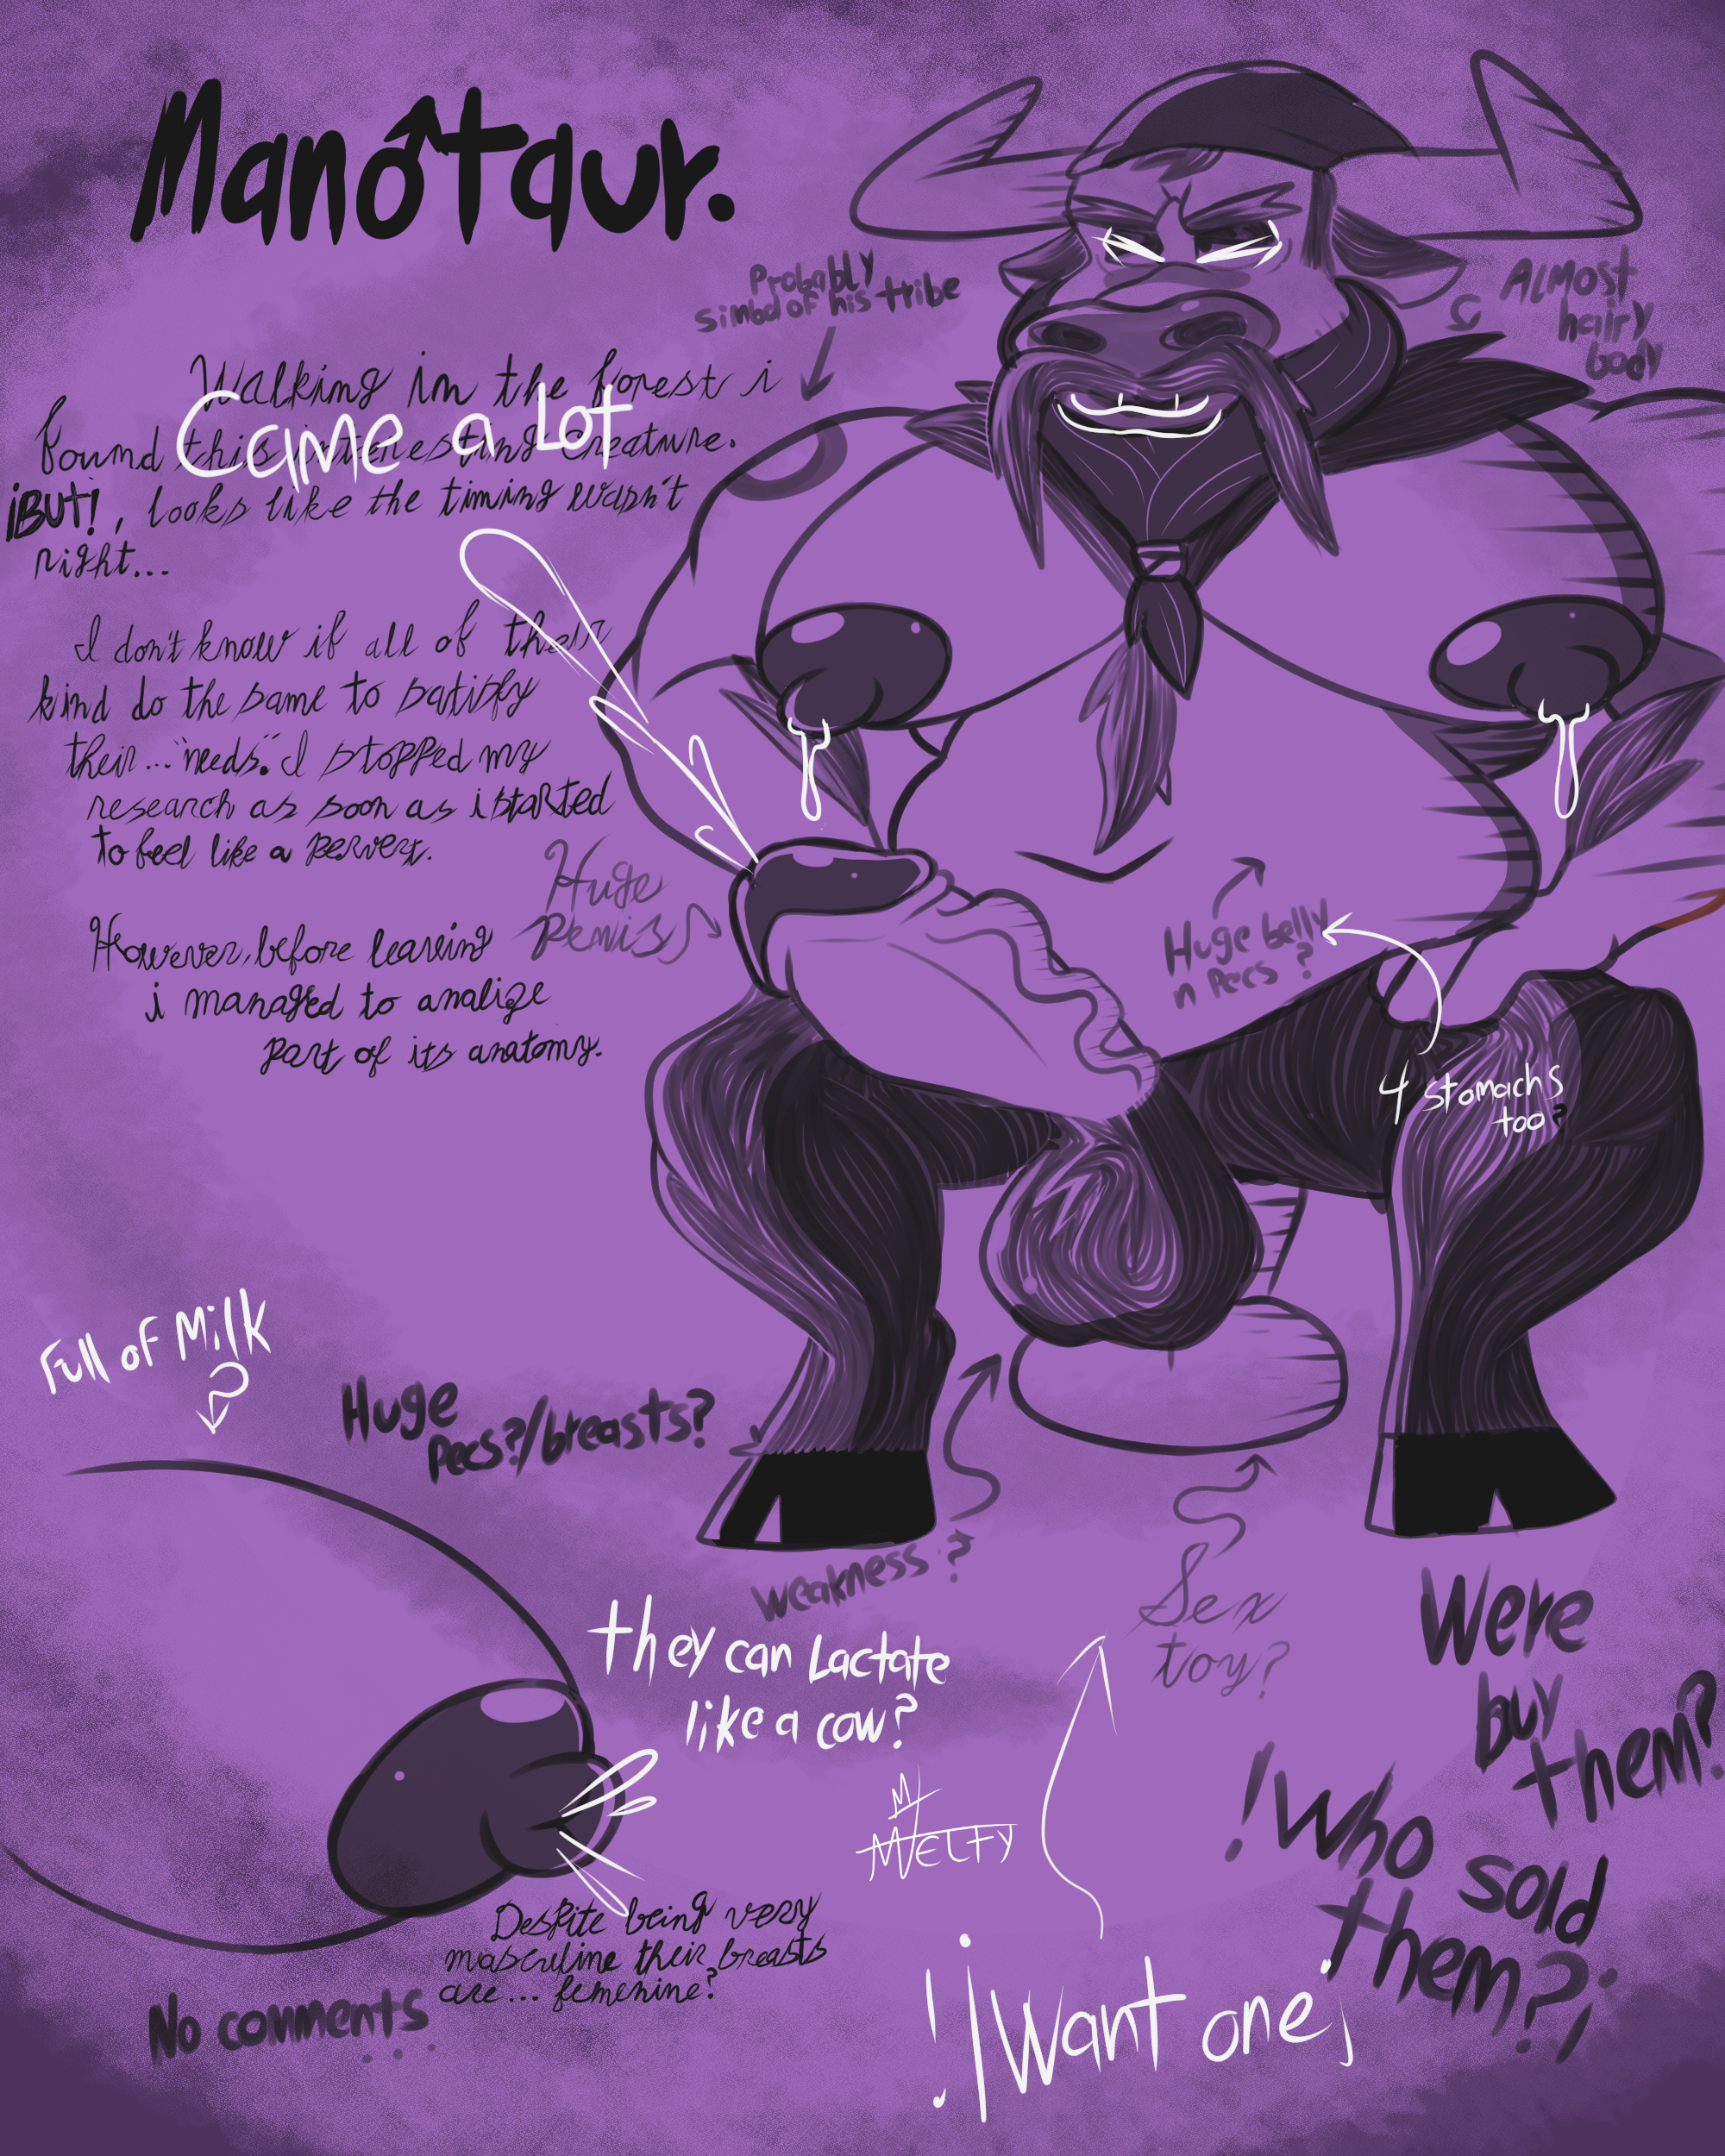 Manotaur.
Probably
simbol of his tribe
Almost
hairy
body
Walking in the forest i
found this interesting creature.
¡BUT!, looks like the timing wasn't
right...
Came a Lot
I don't know if all of their
kind do the same to satisfy
their... "needs". I stopped my
research as soon as i started
to feel like a pervert.
Huge
Penis
However, before leaving
i managed to analize
part of its anatomy.
Huge belly
n Pecs ?
4 stomachs
too?
Full of Milk
Huge
Pecs?/breasts?
Weakness?
Sex
toy?
They can Lactate
like a cow?
Were
buy
them?
!Who sold
them?¡
M
MELTY
Despite being very
masculine their breasts
are... femenine?
No comments
...
!I Want one¡